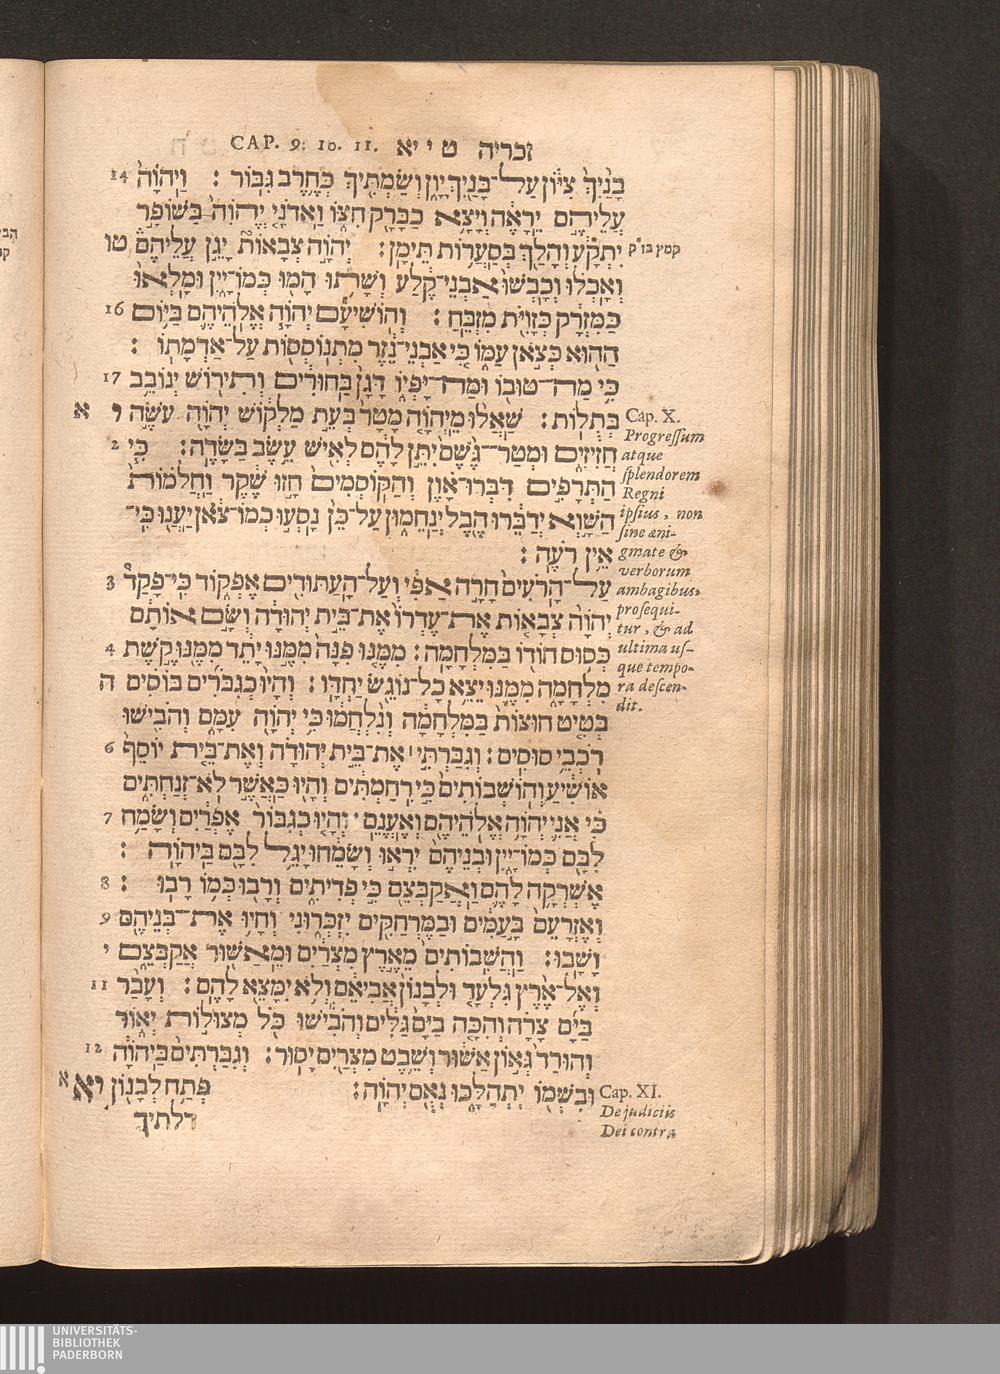 זכריה ט י יא CAP. 9: 10. 11.
בָּנַ֙יִךְ֙ צִיּ֔וֹן עַל־בָּנַ֖יִךְ יָוָ֑ן וְשַׂמְתִּ֖יךְ כְּחֶ֥רֶב גִּבּֽוֹר׃ וַֽיהֹוָה֙ 14
עֲלֵיהֶ֣ם יֵֽרָאֶ֔ה וְיָצָ֥א כַבָּרָ֖ק חִצּ֑וֹ וַֽאדֹנָ֤י יֱהֹוִה֙ בַּשּׁוֹפָ֣ר
יִתְקָ֔ע וְהָלַ֖ךְ בְּסַֽעֲר֥וֹת תֵּימָֽן׃ יְהֹוָ֣ה צְבָאוֹת֮ יָגֵ֣ן עֲלֵיהֶם֒ טו
קמץ בז״ק
וְאָֽכְל֗וּ וְכָֽבְשׁוּ֙ אַבְנֵי־קֶ֔לַע וְשָׁת֥וּ הָמ֖וּ כְּמוֹ־יָ֑יִן וּמָֽלְאוּ֙
כַּמִּזְרָ֔ק כְּזָוִיּ֖ת מִזְבֵּֽחַ׃ וְֽהוֹשִׁיעָ֞ם יְהֹוָ֧ה אֱלֹֽהֵיהֶ֛ם בַּיּ֥וֹם 16
הַה֖וּא כְּצֹ֣אן עַמּ֑וֹ כִּ֚י אַבְנֵי־נֵ֔זֶר מִֽתְנוֹסְס֖וֹת עַל־אַדְמָתֽוֹ׃
כִּ֥י מַה־טּוּב֖וֹ וּמַה־יָּפְי֑וֹ דָּגָן֙ בַּֽחוּרִ֔ים וְתִיר֖וֹשׁ יְנוֹבֵ֥ב 17
בְּתֻלֽוֹת׃ שַׁאֲל֨וּ מֵֽיהֹוָ֤ה מָטָר֙ בְּעֵ֣ת מַלְק֔וֹשׁ יְהֹוָ֖ה עֹשֶׂ֣ה י א
חֲזִיזִ֑ים וּמְטַר־גֶּ֙שֶׁם֙ יִתֵּ֣ן לָהֶ֔ם לְאִ֖ישׁ עֵ֥שֶׂב בַּשָּׂדֶֽה׃ כִּ֧י 2
הַתְּרָפִ֣ים דִּבְּרוּ־אָ֗וֶן וְהַקּֽוֹסְמִים֙ חָ֣זוּ שֶׁ֔קֶר וַֽחֲלֹמוֹת֙
הַשָּׁ֣וְא יְדַבֵּ֔רוּ הֶ֖בֶל יְנַֽחֵמ֑וּן עַל־כֵּן֙ נָֽסְע֣וּ כְמוֹ־צֹ֔אן יַֽעֲנ֖וּ כִּי־
אֵ֥ין רֹעֶֽה׃
עַל־הָֽרֹעִים֙ חָרָ֣ה אַפִּ֔י וְעַל־הָֽעַתּוּדִ֖ים אֶפְק֑וֹד כִּי־פָקַד֩ 3
יְהֹוָ֨ה צְבָא֤וֹת אֶת־עֶדְרוֹ֙ אֶת־בֵּ֣ית יְהוּדָ֔ה וְשָׂ֣ם אוֹתָ֔ם
כְּס֥וּס הוֹד֖וֹ בַּמִּלְחָמָֽה׃ מִמֶּ֤נּוּ פִנָּה֙ מִמֶּ֣נּוּ יָתֵ֔ד מִמֶּ֖נּוּ קֶ֣שֶׁת 4
מִלְחָמָ֑ה מִמֶּ֛נּוּ יֵצֵ֥א כָל־נוֹגֵ֖שׂ יַחְדָּֽו׃ וְהָי֨וּ כְגִבֹּרִ֜ים בּוֹסִ֨ים ה
בְּטִ֤יט חוּצוֹת֙ בַּמִּלְחָמָ֔ה וְנִ֨לְחֲמ֔וּ כִּ֥י יְהֹוָ֖ה עִמָּ֑ם וְהֹבִ֖ישׁוּ
רֹֽכְבֵ֥י סוּסִֽים׃ וְגִבַּרְתִּ֣י ׀ אֶת־בֵּ֣ית יְהוּדָ֗ה וְאֶת־בֵּ֤ית יוֹסֵף֙ 6
אוֹשִׁ֔יעַ וְהֽוֹשְׁבוֹתִים֙ כִּ֣י רִֽחַמְתִּ֔ים וְהָי֖וּ כַּֽאֲשֶׁ֣ר לֹֽא־זְנַחְתִּ֑ים
כִּ֗י אֲנִ֛י יְהֹוָ֥ה אֱלֹֽהֵיהֶ֖ם וְאֶֽעֱנֵֽם׃ וְהָי֤וּ כְגִבּוֹר֙ אֶפְרַ֔יִם וְשָׂמַ֥ח 7
לִבָּ֖ם כְּמוֹ־יָ֑יִן וּבְנֵיהֶם֙ יִרְא֣וּ וְשָׂמֵ֔חוּ יָגֵ֥ל לִבָּ֖ם בַּֽיהֹוָֽה׃
אֶשְׁרְקָ֥ה לָהֶ֛ם וַֽאֲקַבְּצֵ֖ם כִּ֣י פְדִיתִ֑ים וְרָב֖וּ כְּמ֥וֹ רָבֽוּ׃ 8
וְאֶזְרָעֵם֙ בָּֽעַמִּ֔ים וּבַמֶּרְחַקִּ֖ים יִזְכְּר֑וּנִי וְחָי֥וּ אֶת־בְּנֵיהֶ֖ם 9
וָשָֽׁבוּ׃ וַהֲשִֽׁבוֹתִים֙ מֵאֶ֣רֶץ מִצְרַ֔יִם וּמֵֽאַשּׁ֖וּר אֲקַבְּצֵ֑ם י
וְאֶל־אֶ֨רֶץ גִּלְעָ֤ד וּלְבָנוֹן֙ אֲבִיאֵ֔ם וְלֹ֥א יִמָּצֵ֖א לָהֶֽם׃ וְעָבַ֨ר 11
בַּיָּ֜ם צָרָ֗ה וְהִכָּ֤ה בַיָּם֙ גַּלִּ֔ים וְהֹבִ֕ישׁוּ כֹּ֖ל מְצוּל֣וֹת יְאֹ֑ר
וְהוּרַד֙ גְּא֣וֹן אַשּׁ֔וּר וְשֵׁ֥בֶט מִצְרַ֖יִם יָסֽוּר׃ וְגִבַּרְתִּים֙ בַּֽיהֹוָ֔ה 12
וּבִשְׁמ֖וֹ יִתְהַלָּ֑כוּ נְאֻ֖ם יְהֹוָֽה׃ פְּתַ֥ח לְבָנ֖וֹן יא א
דלתיך
Cap. X.
Progreſſum
atque
ſplendorem
Regni
ipſius, non
ſine æni-
gmate &
verborum
ambagibus,
proſequi-
tur, & ad
ultima uſ-
que tempo-
ra deſcen-
dit.
Cap. XI.
De judiciis
Dei contra
UNIVERSITÄTS-
BIBLIOTHEK
PADERBORN